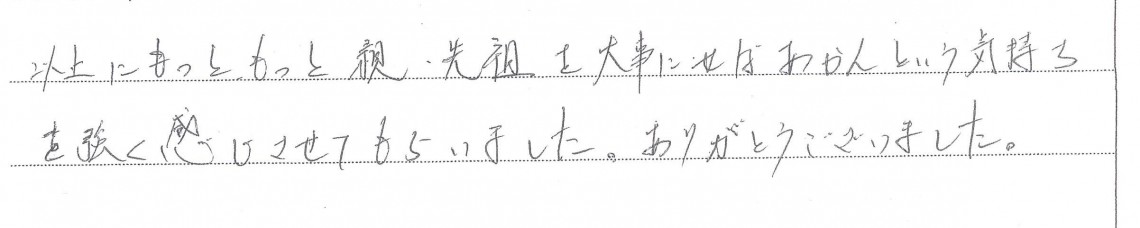 以上にもっともっと親・先祖を大事にせばあかんという気持ち
を強く感じさせてもらいました。ありがとうございました。